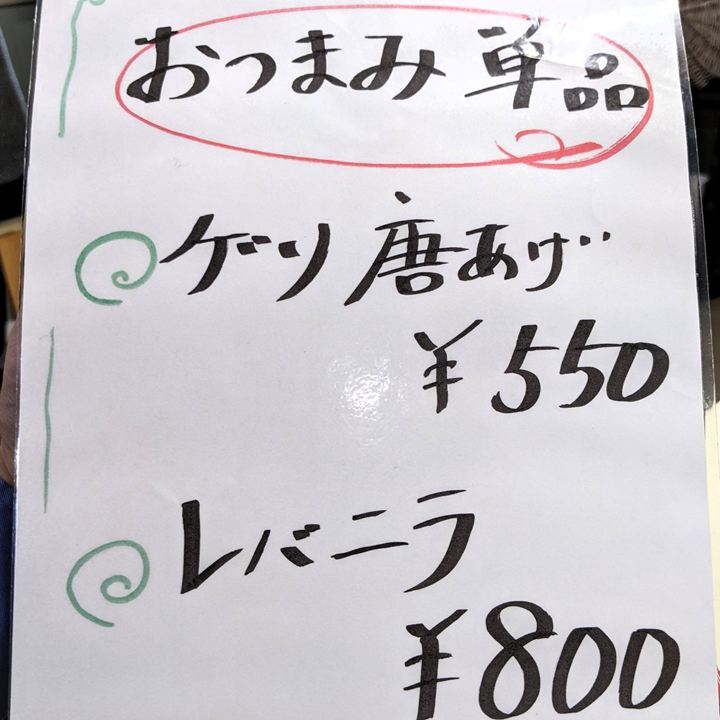 おつまみ 単品
ゲソ 唐あげ
¥550
レバニラ
¥800